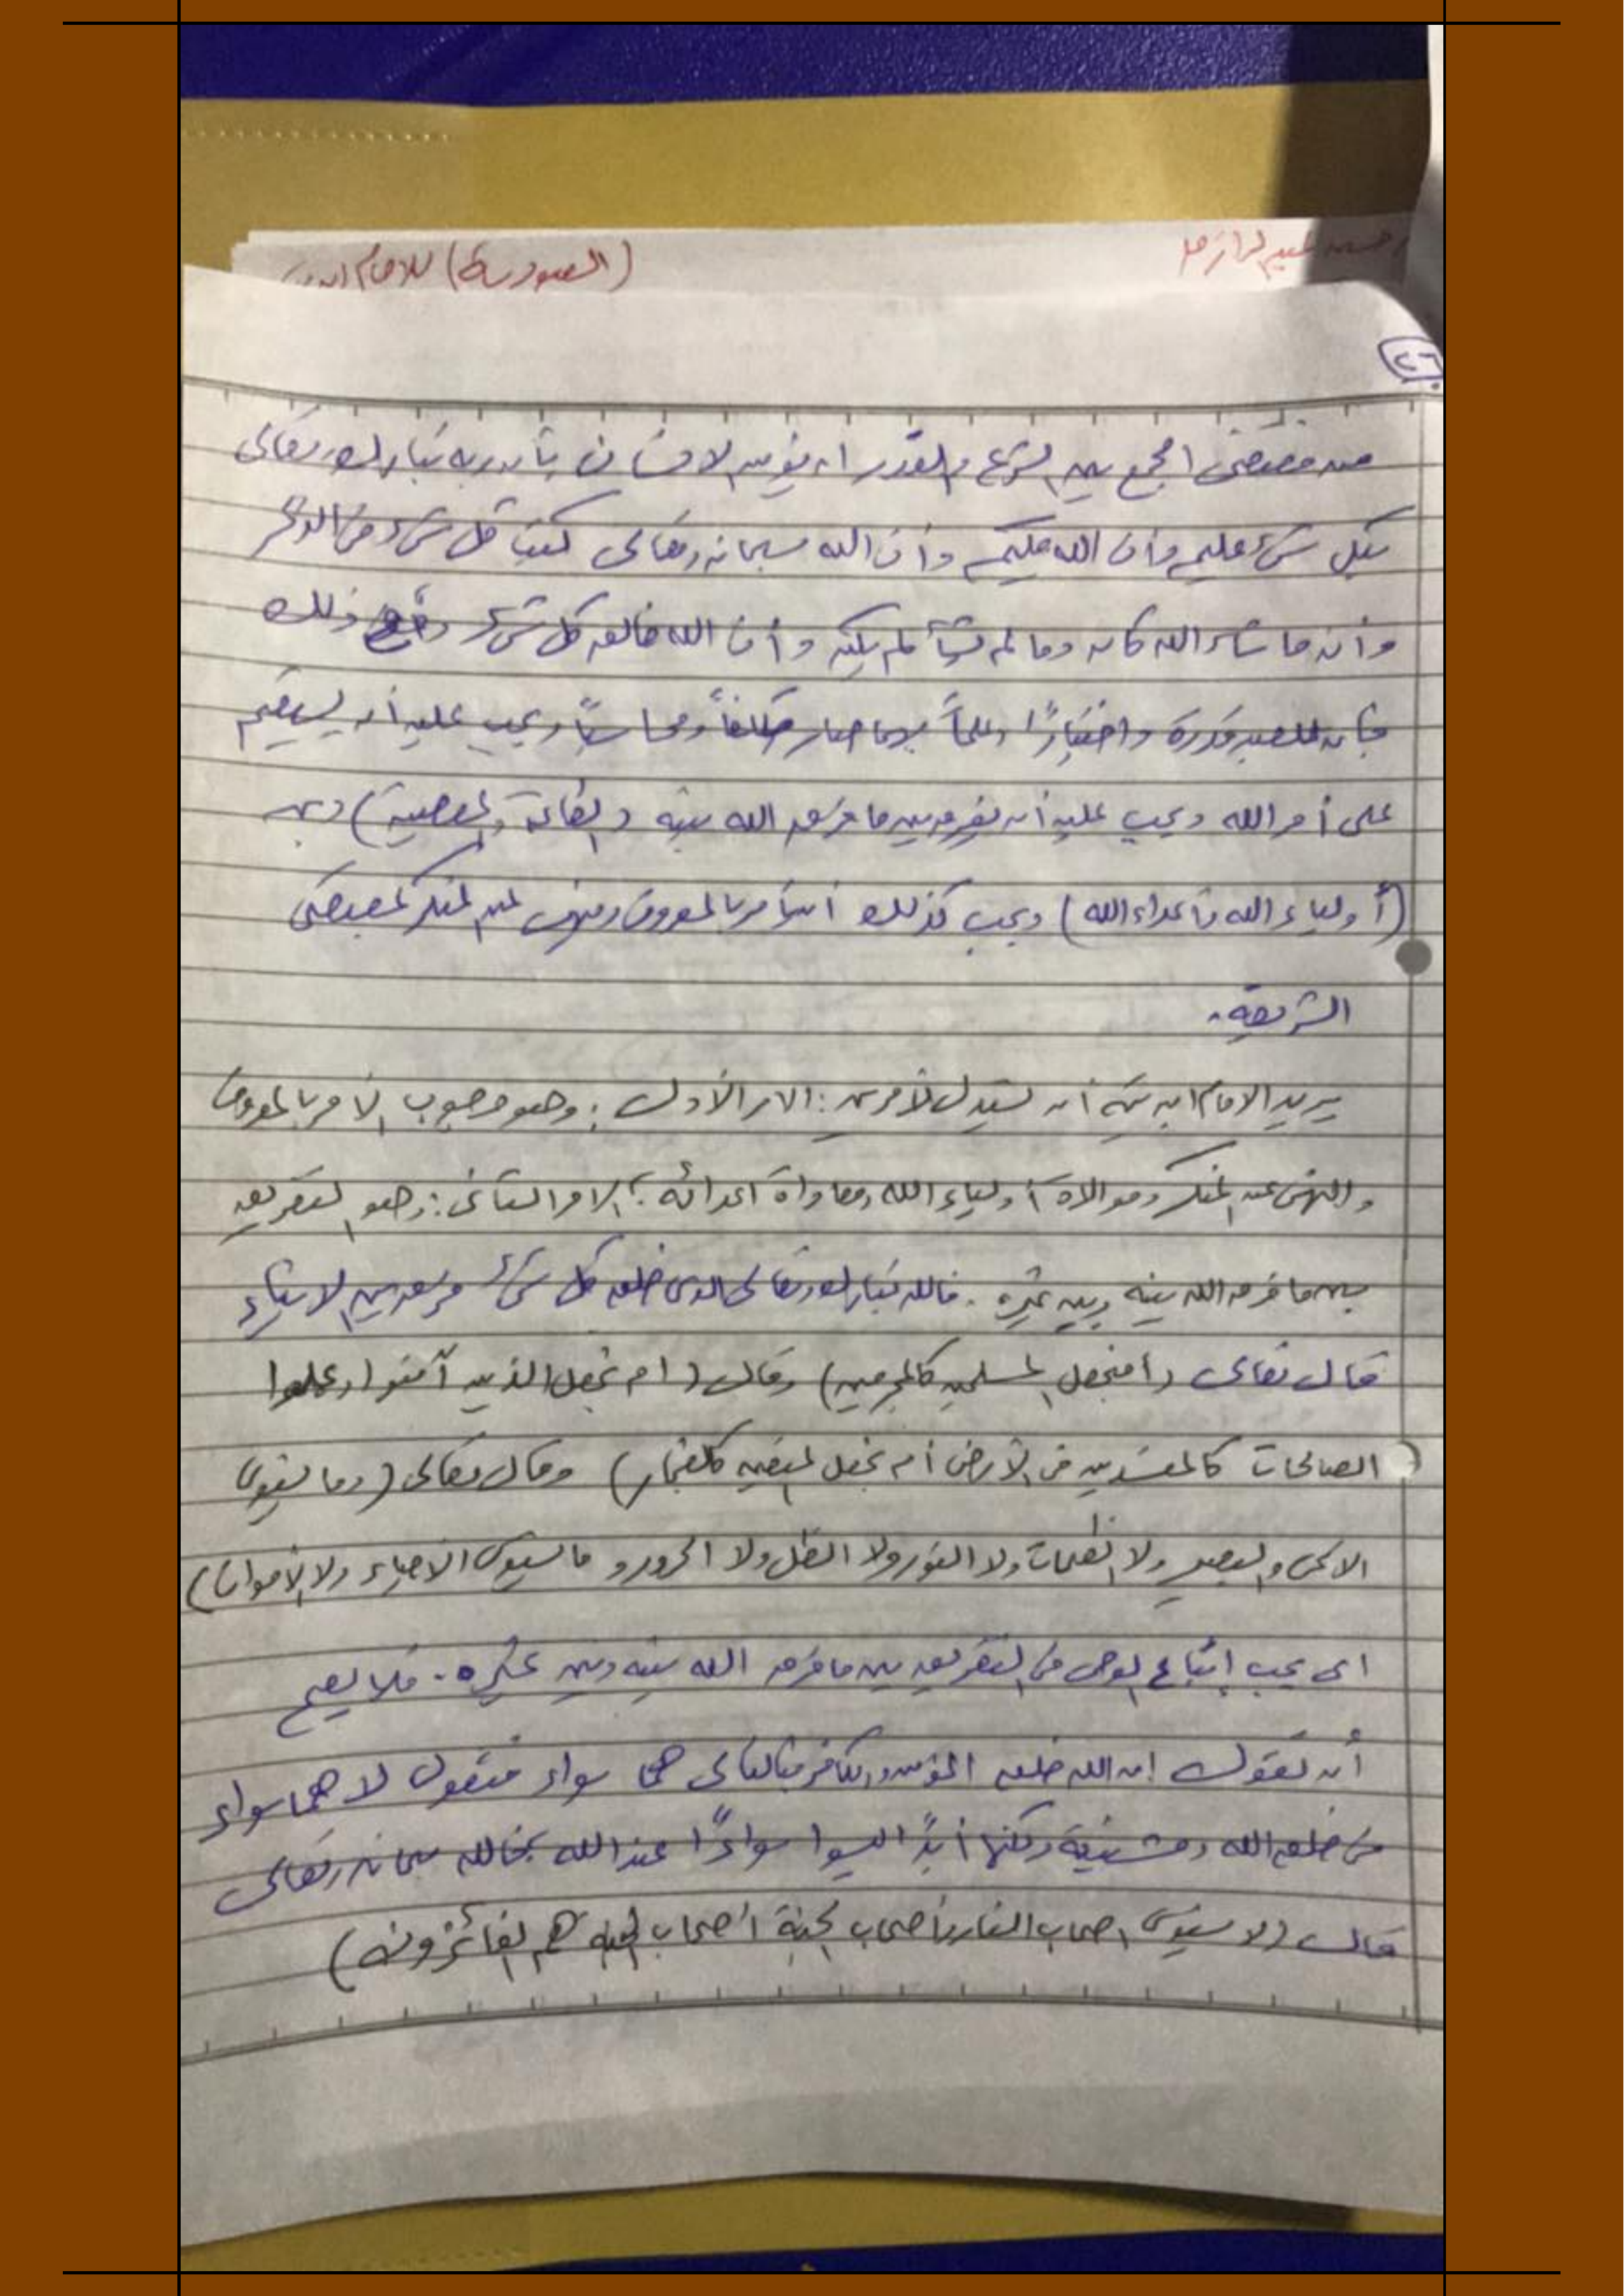 (العبودية) للامام ابن
٢٦
من مقتضى الجمع بين الشرع والقدر ان يؤمن الانسان بأن ربه تبارك وتعالى
بكل شيء عليم وأن الله حكيم وأن الله سبحانه وتعالى كتب كل شيء في الذكر
وأن ما شاء الله كان وما لم يشأ لم يكن وأن الله خالق كل شيء ومع ذلك
فإن للعبد قدرة واختيارًا وبهما صار مكلفاً ومحاسباً ويجب عليه أن يستقيم
على أمر الله ويجب عليه أن يفرق بين ما فرق الله بينه (الطاعة والمعصية) وبين
(أولياء الله وأعداء الله) ويجب كذلك أن يأمر بالمعروف وينهى عن المنكر بمقتضى
الشريعة.
يريد الامام ابن تيمية أن يستدل لأمرين: الامر الأول: وهو وجوب الأمر بالمعروف
والنهي عن المنكر وموالاة أولياء الله ومعاداة اعدائه؛ الامر الثاني: وهو التفريق
بين ما فرق الله بينه وبين غيره. فالله تبارك وتعالى الذى خلق كل شيء فرق بين الاشياء
قال تعالى (أفنجعل المسلمين كالمجرمين) وقال (ام نجعل الذين آمنوا وعملوا
الصالحات كالمفسدين في الأرض أم نجعل المتقين كالفجار) وقال تعالى (وما يستوى
الاعمى والبصير ولا الظلمات ولا النور ولا الظل ولا الحرور وما يستوى الاحياء ولا الأموات)
اى يجب إتباع الوحى في التفريق بين ما فرق الله بينه وبين غيره. فلا يصح
أن تقول إن الله خلق المؤمن والكافر فبالتالى هما سواء فنقول لا هما سواء
في خلق الله ومشيئته ولكنها أبدًا ليسوا سواءًا عند الله فالله سبحانه وتعالى
قال (لا يستوى اصحاب النار وأصحاب الجنة أصحاب الجنة هم الفائزون)